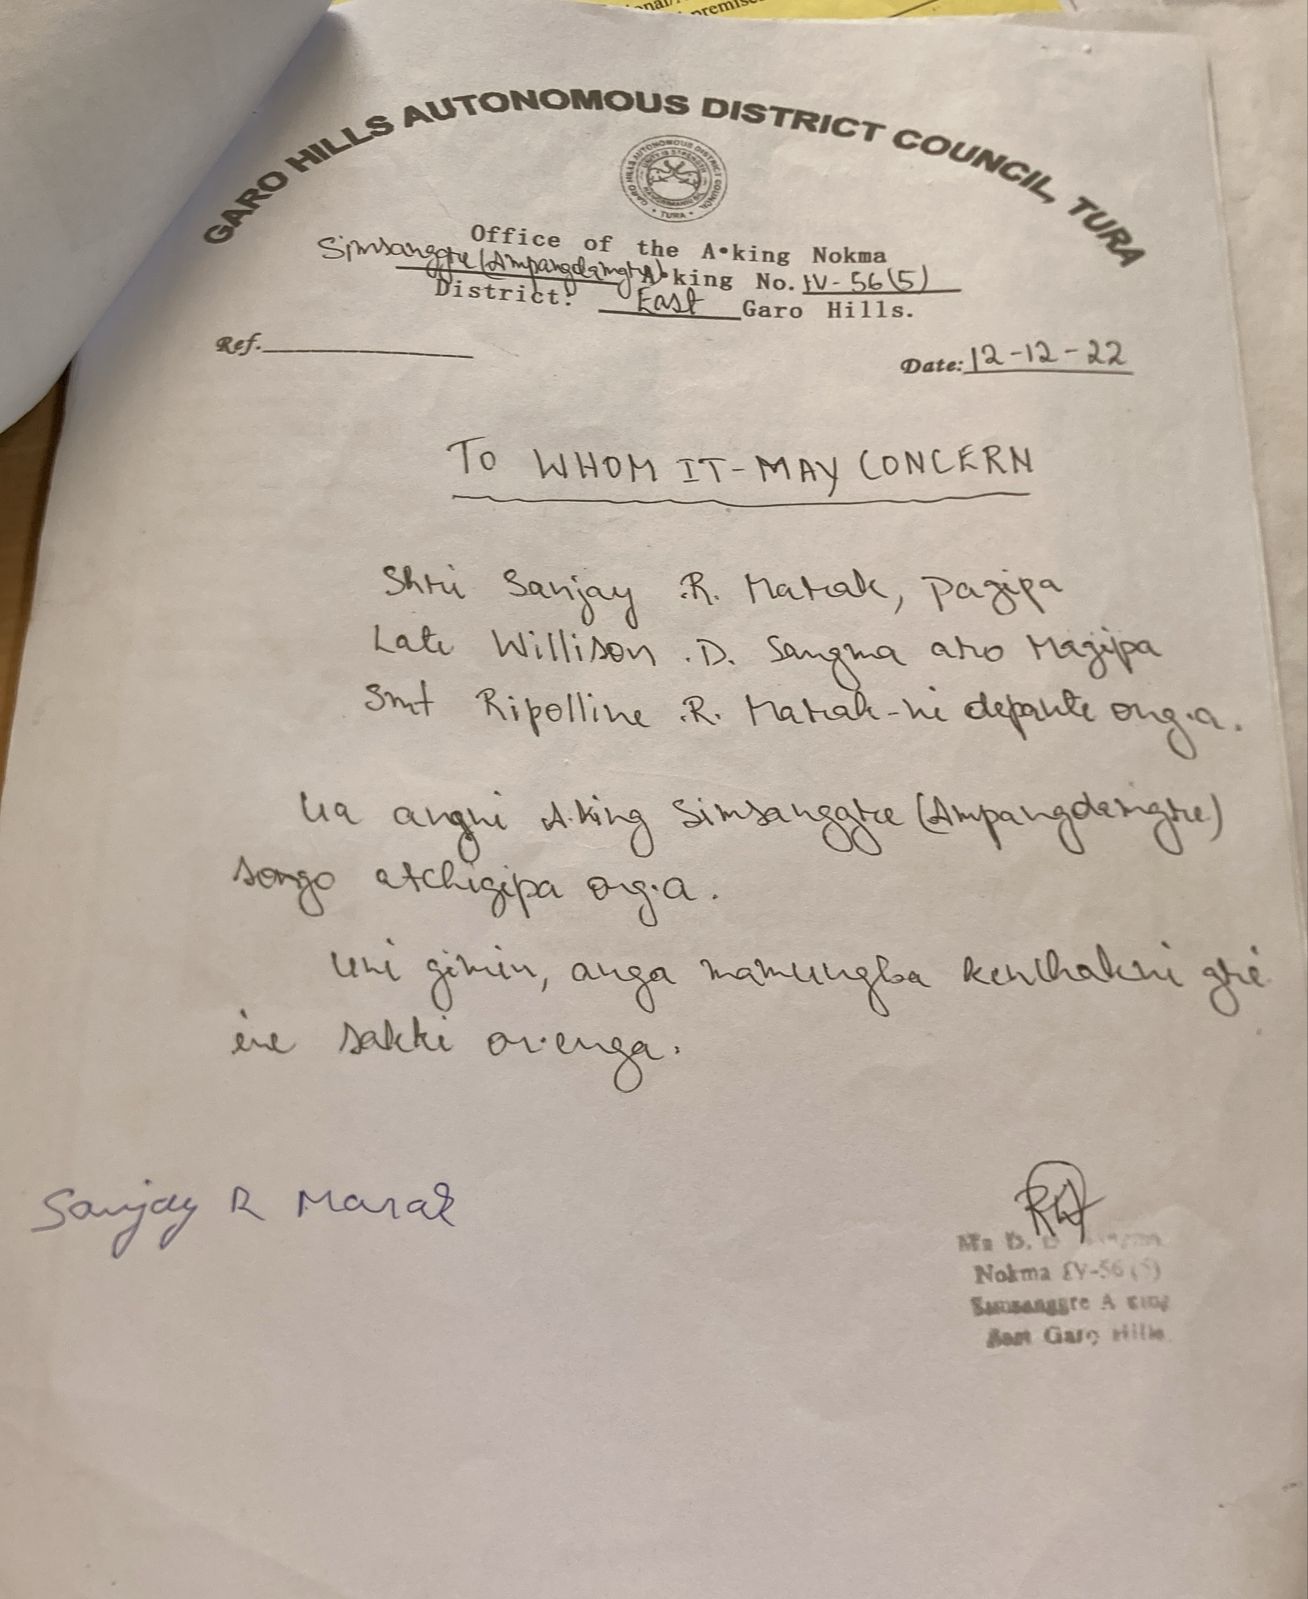 GARO HILLS AUTONOMOUS DISTRICT COUNCIL, TURA
Office of the A•king Nokma
Simsanggre (Ampangdamgre) A•king No. IV-56(5)
District: East Garo Hills.
Ref.
Date: 12-12-22
TO WHOM IT-MAY CONCERN
Shri Sanjay .R. Marak, pagipa
Late Willison .D. Sangma aro Magipa
Smt Ripolline .R. Marak-ni depante ong.a.
Ua angni A.king Simsanggre (Ampangdamgre)
songo atchigipa ong.a.
Uni gimin, anga mamungba kenchakni gri
ine sakki on.enga.
Sanjay R Marak
Nokma IV-56(5)
Simsanggre A king
East Garo Hills